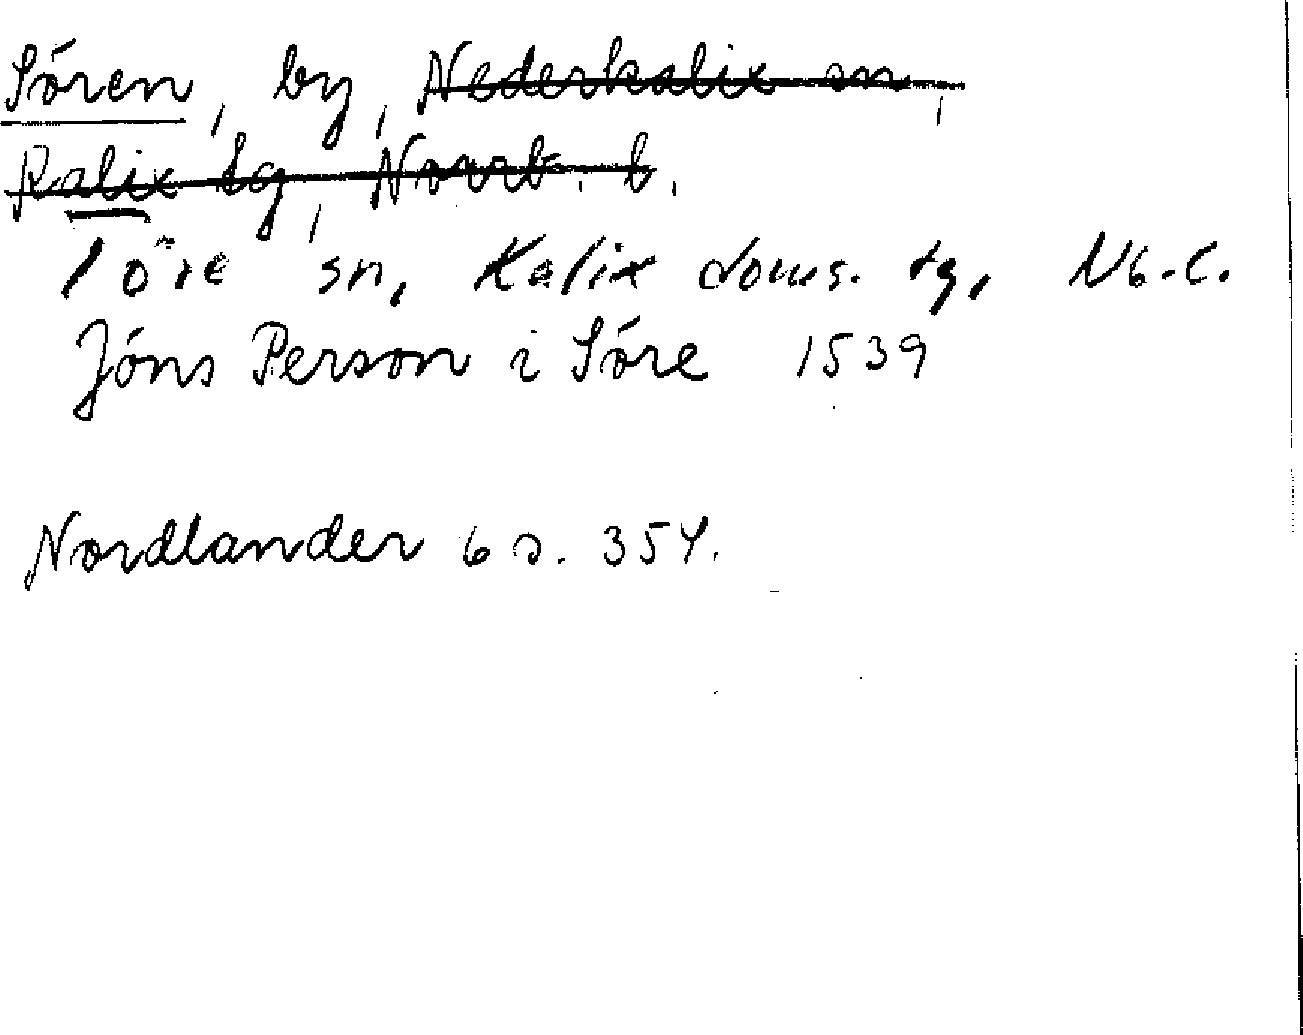 Sören, by, Nederkalix sn,
Kalix tg, Norrb. l.
Töre sn, Kalix doms. tg, Nb.l.
Jöns Person i Söre 1539
Nordlander 6 s. 354.